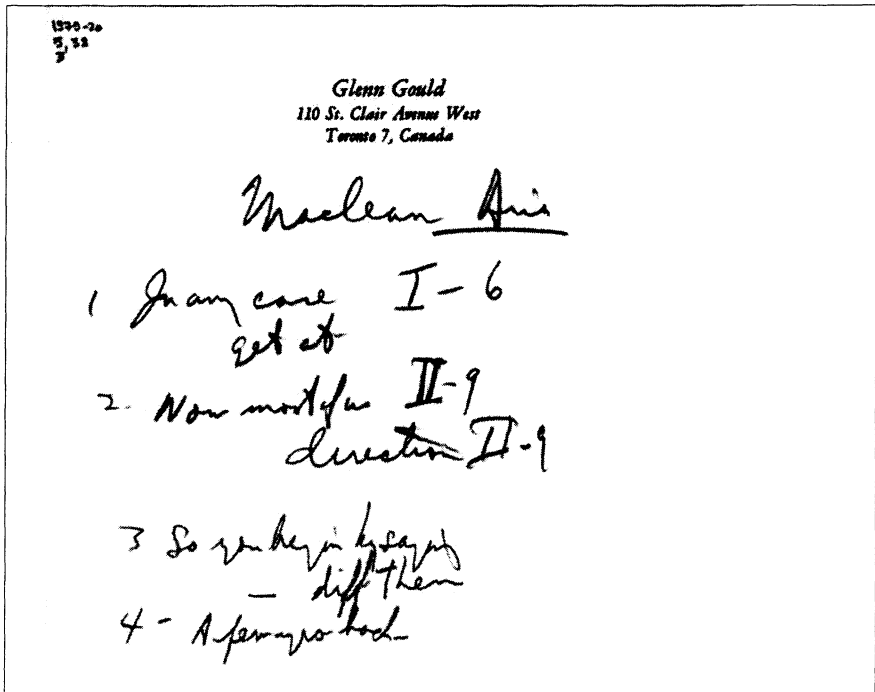 1979-20
5, 38
Glenn Gould
110 St. Clair Avenue West
Toronto 7, Canada
Maclean
1 In any case I - 6
get at
2. Now most of us II - 9
direction II - 9
3 So you begin by saying
— diff them
4 - A few yrs back